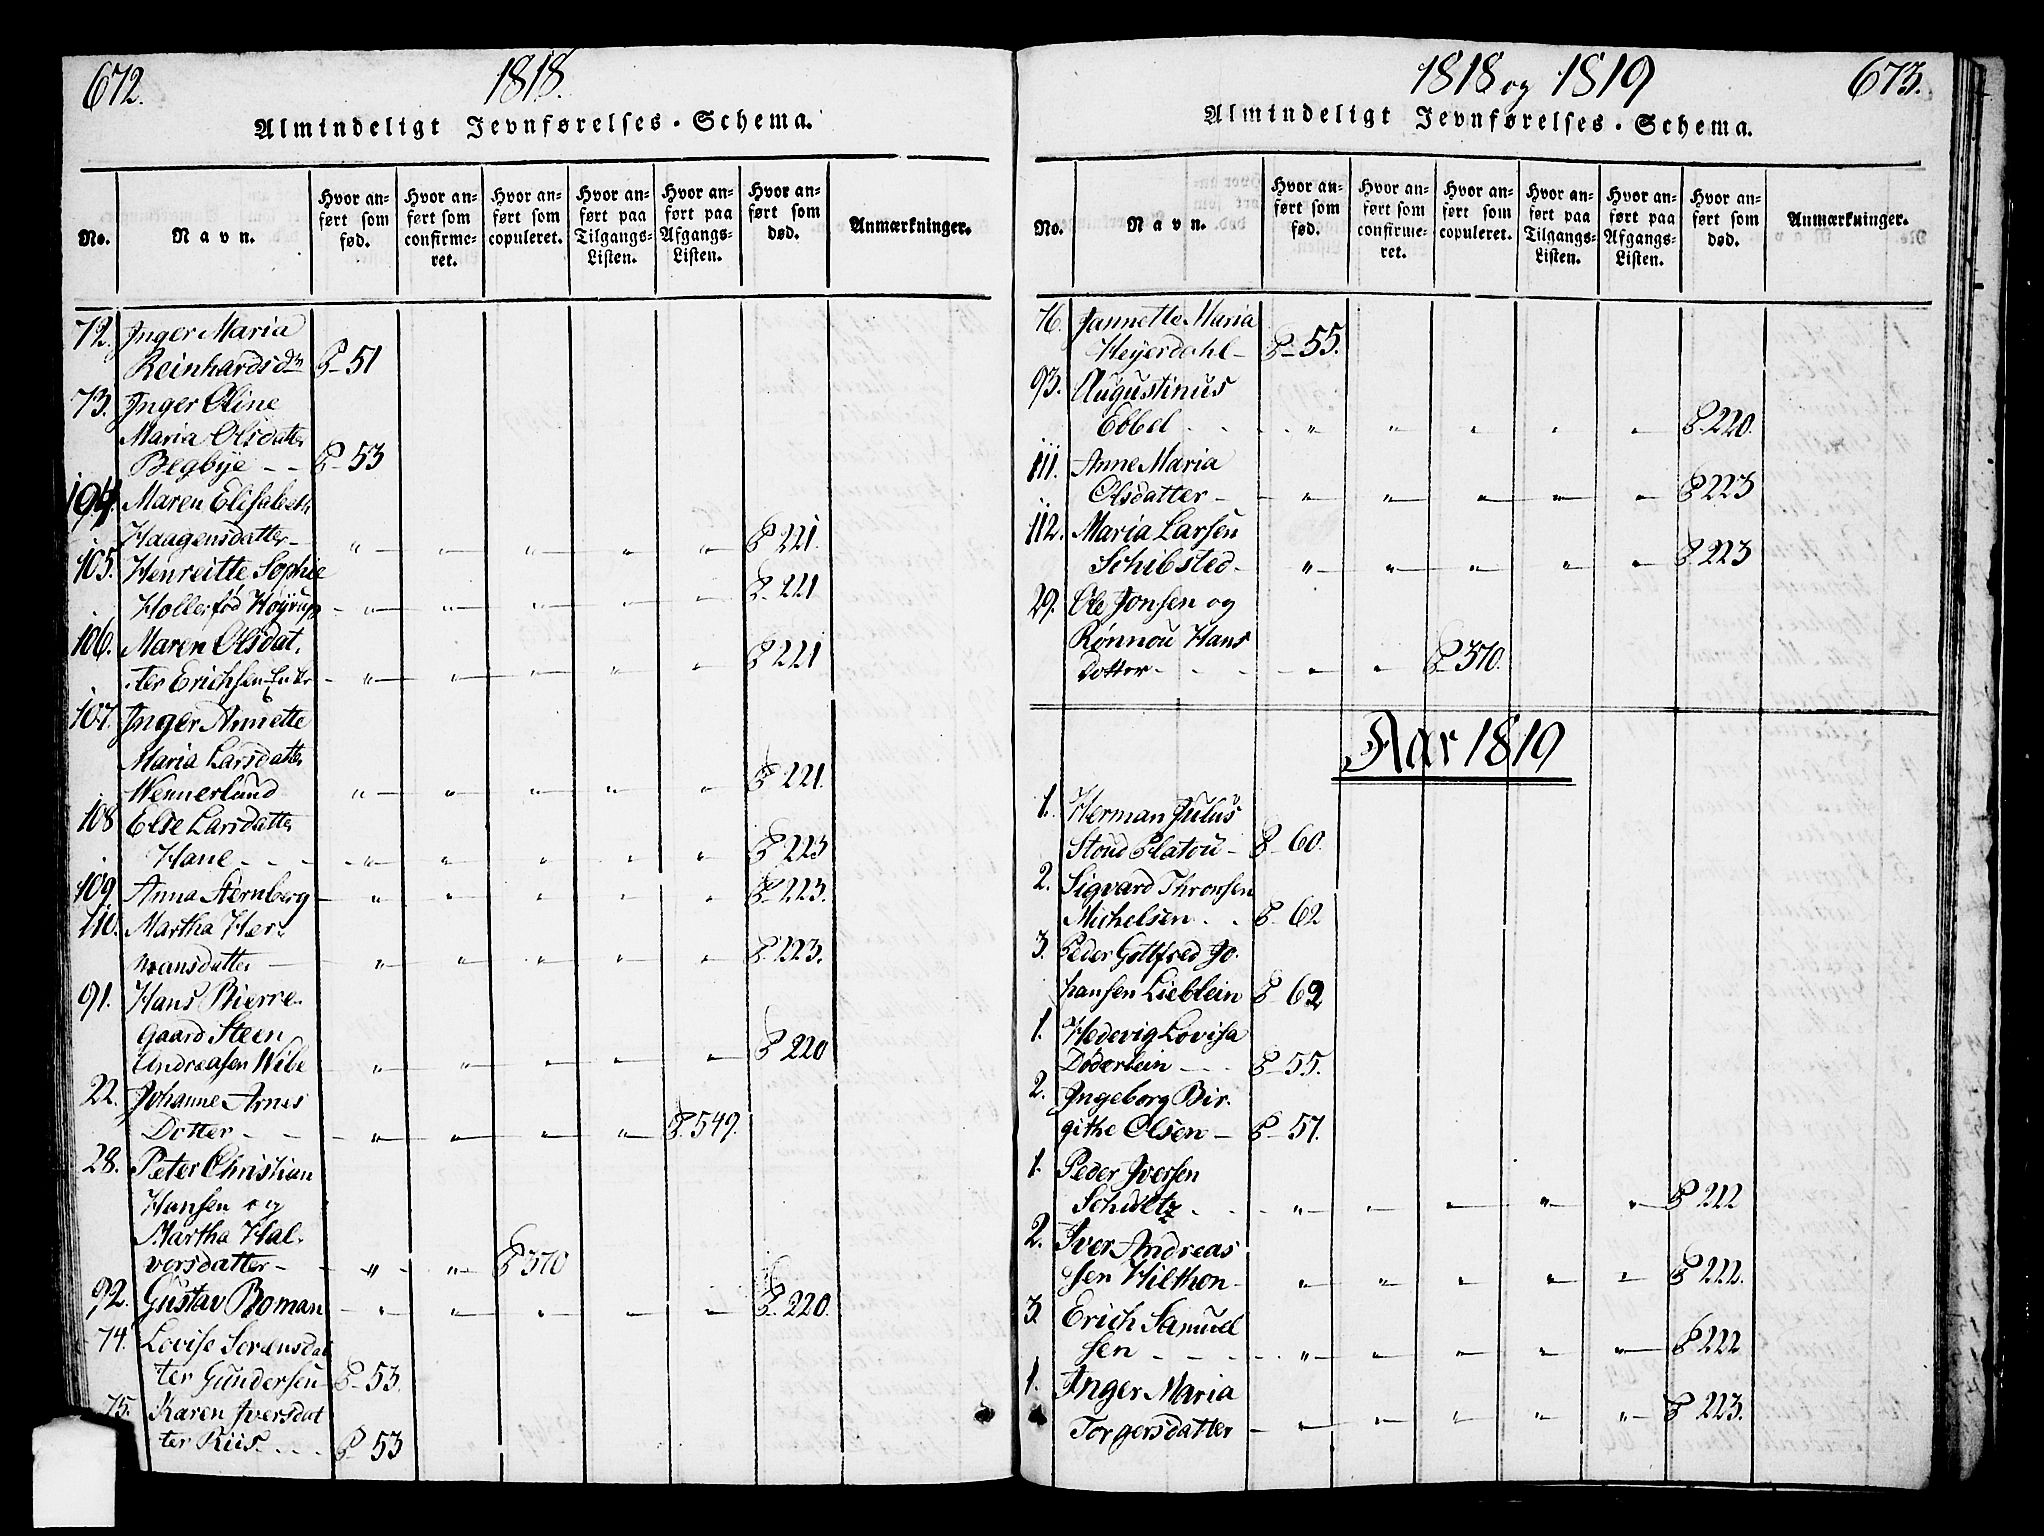 672.
1818.
Almindeligt Jevnførelses-Schema.
No.
Navn.
Hvor an-
ført som
fød.
Hvor an-
ført som
confirme-
ret.
Hvor an-
ført som
copuleret.
Hvor an-
ført paa
Tilgangs-
Listen.
Hvor an-
ført paa
Afgangs-
Listen.
Hvor an-
ført som
død.
Anmærkninger.
72. Inger Maria
Reinhardsdtr P- 51
73. Inger Oline
Maria Olsdatter
Begbye - - P- 53
104. Maren Elisabeth
Haagensdatter - " " " " " P 221.
105. Henreitte Sophie
Høyrup - " " " " " P. 221
106. Maren Olsdat.
ter Erichsen - " " " " " P 221
107. Inger Annette
Maria Larsdatter
Wennerlund " " " " " P 221.
108 Else Larsdatter
Hane - - - " " " " " P 223
109. Anna Sternberg - " " " " " P- 223.
110. Martha Her=
mansdatter - " " " " " P. 223.
91. Hans Bierre-
gaard Steen
Andreasen Wibe " " " " " P 220
22. Johanne Arnes
Dotter - - - " " " " P. 549.
28. Peter Christian
Hansen og
Martha Hal-
vorsdatter - - " " P 370
92. Gustav Boman - " " " " " P. 220.
74. Lovise Sørensdat
ter Gundersen P- 53.
75. Karen Iversdat
ter Riis. - - - P- 53
1818 og 1819
673.
Almindeligt Jevnførelses-Schema.
No.
Navn.
Hvor an-
ført som
fød.
Hvor an-
ført som
confirme-
ret.
Hvor an-
ført som
copuleret.
Hvor an-
ført paa
Tilgangs-
Listen.
Hvor an-
ført paa
Afgangs-
Listen.
Hvor an-
ført som
død.
Anmærkninger.
76. Jannette Maria
Heyerdahl - P- 55.
93. Augustinus
Ebbel - - - " " " " " P. 220.
111. Anne Maria
Olsdatter - - " " " " " P 223
112. Maria Larsen
Schibsted - " " " " " P 223
29. Ole Jonsen og
Rønnou Hans
Dotter - - - " " P- 370.
Aar 1819
1. Herman Julus
Stoud Platou - P- 60.
2. Sigvard Thronsen
Michelsen - - P- 62
3. Peder Gottfred Jo-
hansen Lieblein P- 62
1. Hedevig Lovisa
Døderlein - - - P- 55.
2. Ingeborg Bir-
githe Olsen - P- 57.
1. Peder Iversen
Schultz - - - " " " " " P 222
2. Iver Andreas
sen Hilthon - " " " " " P 222.
3. Erich Samuel
sen - - - - " " " " " P 222
1. Inger Maria
Torgersdatter - " " " " " P 223.